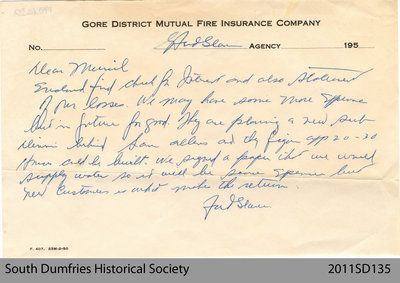 GORE DISTRICT MUTUAL FIRE INSURANCE COMPANY
No. AGENCY 195
Dear
Enclosed find check for Interest and also Statement
of our losses. We may have some more Expense
but in future for good. They are planning a new sub
behind Sam and they figure app 20-30
could be built. We signed a paper that we would
supply water so it will be some Expense but
new Customers is what make the return.
F. 407. 25M-2-50
South Dumfries Historical Society
2011SD135